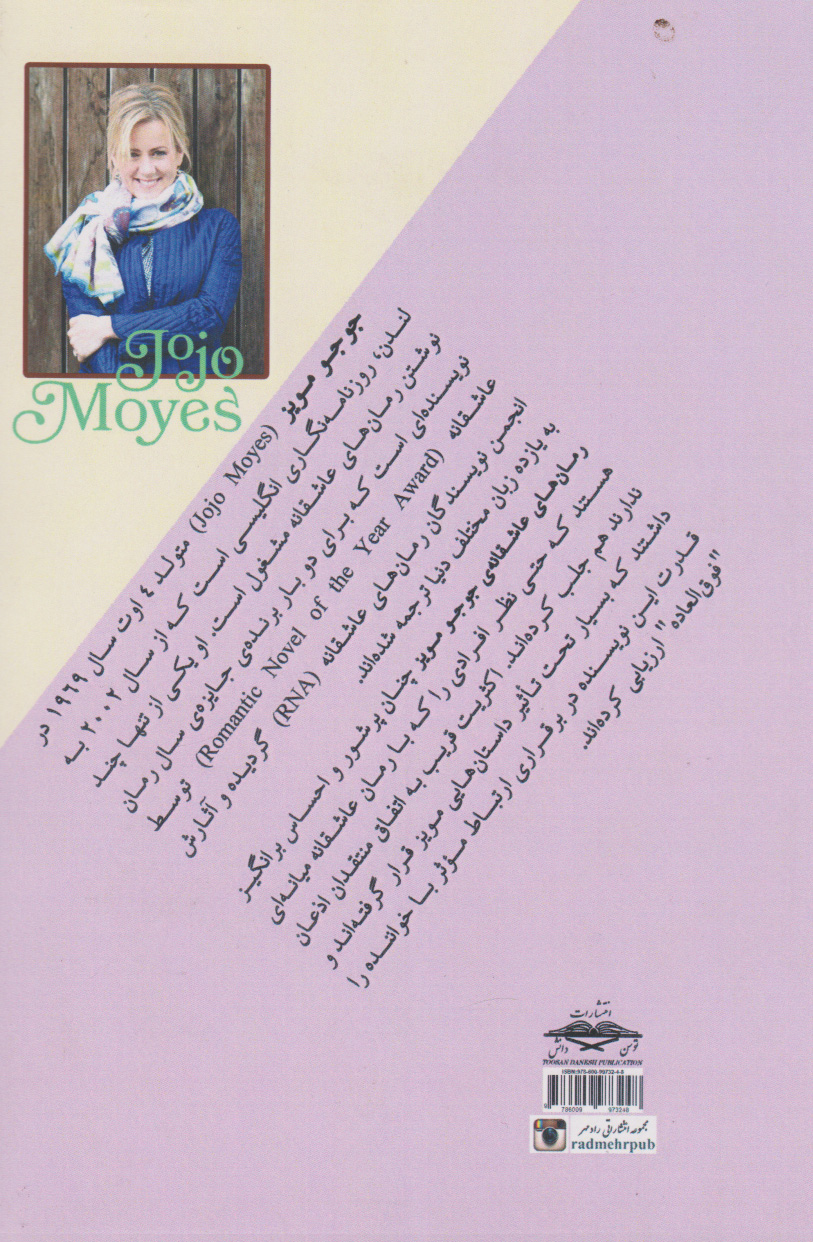 Jojo
Moyes
جوجو مویز (Jojo Moyes) متولد ٤ اوت سال ۱۹۶۹ در
لندن، روزنامه‌نگاری انگلیسی است که از سال ۲۰۰۲ به
نوشتن رمان‌های عاشقانه مشغول است. او یکی از تنها چند
نویسنده‌ای است که برای دو بار برنده‌ی جایزه‌ی سال رمان
عاشقانه (Romantic Novel of the Year Award) توسط
انجمن نویسندگان رمان‌های عاشقانه (RNA) گردیده و آثارش
به یازده زبان مختلف دنیا ترجمه شده‌اند.
رمان‌های عاشقانه‌ی جوجو مویز چنان پرشور و احساس برانگیز
هستند که حتی نظر افرادی را که با رمان عاشقانه میانه‌ای
ندارند هم جلب کرده‌اند. اکثریت قریب به اتفاق منتقدان اذعان
داشتند که بسیار تحت تأثیر داستان‌هایی مویز قرار گرفته‌اند و
قدرت این نویسنده در برقراری ارتباط مؤثر با خواننده را
"فوق‌العاده" ارزیابی کرده‌اند.
انتشارات
توسن دانش
TOOSAN DANESH PUBLICATION
ISBN:978-600-99732-4-8
9 786009 973248
مجموعه انتشاراتی رادمهر
radmehrpub